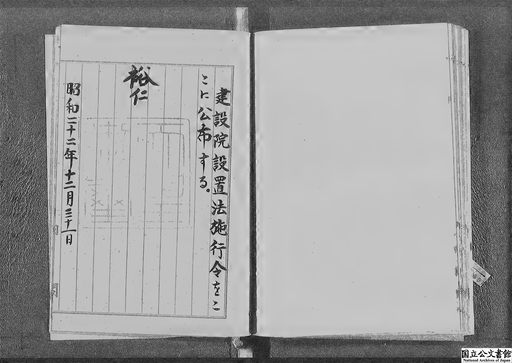 建設院設置法施行令をこ
こに公布する。
裕仁
昭和二十二年十二月三十一日
国立公文書館
National Archives of Japan